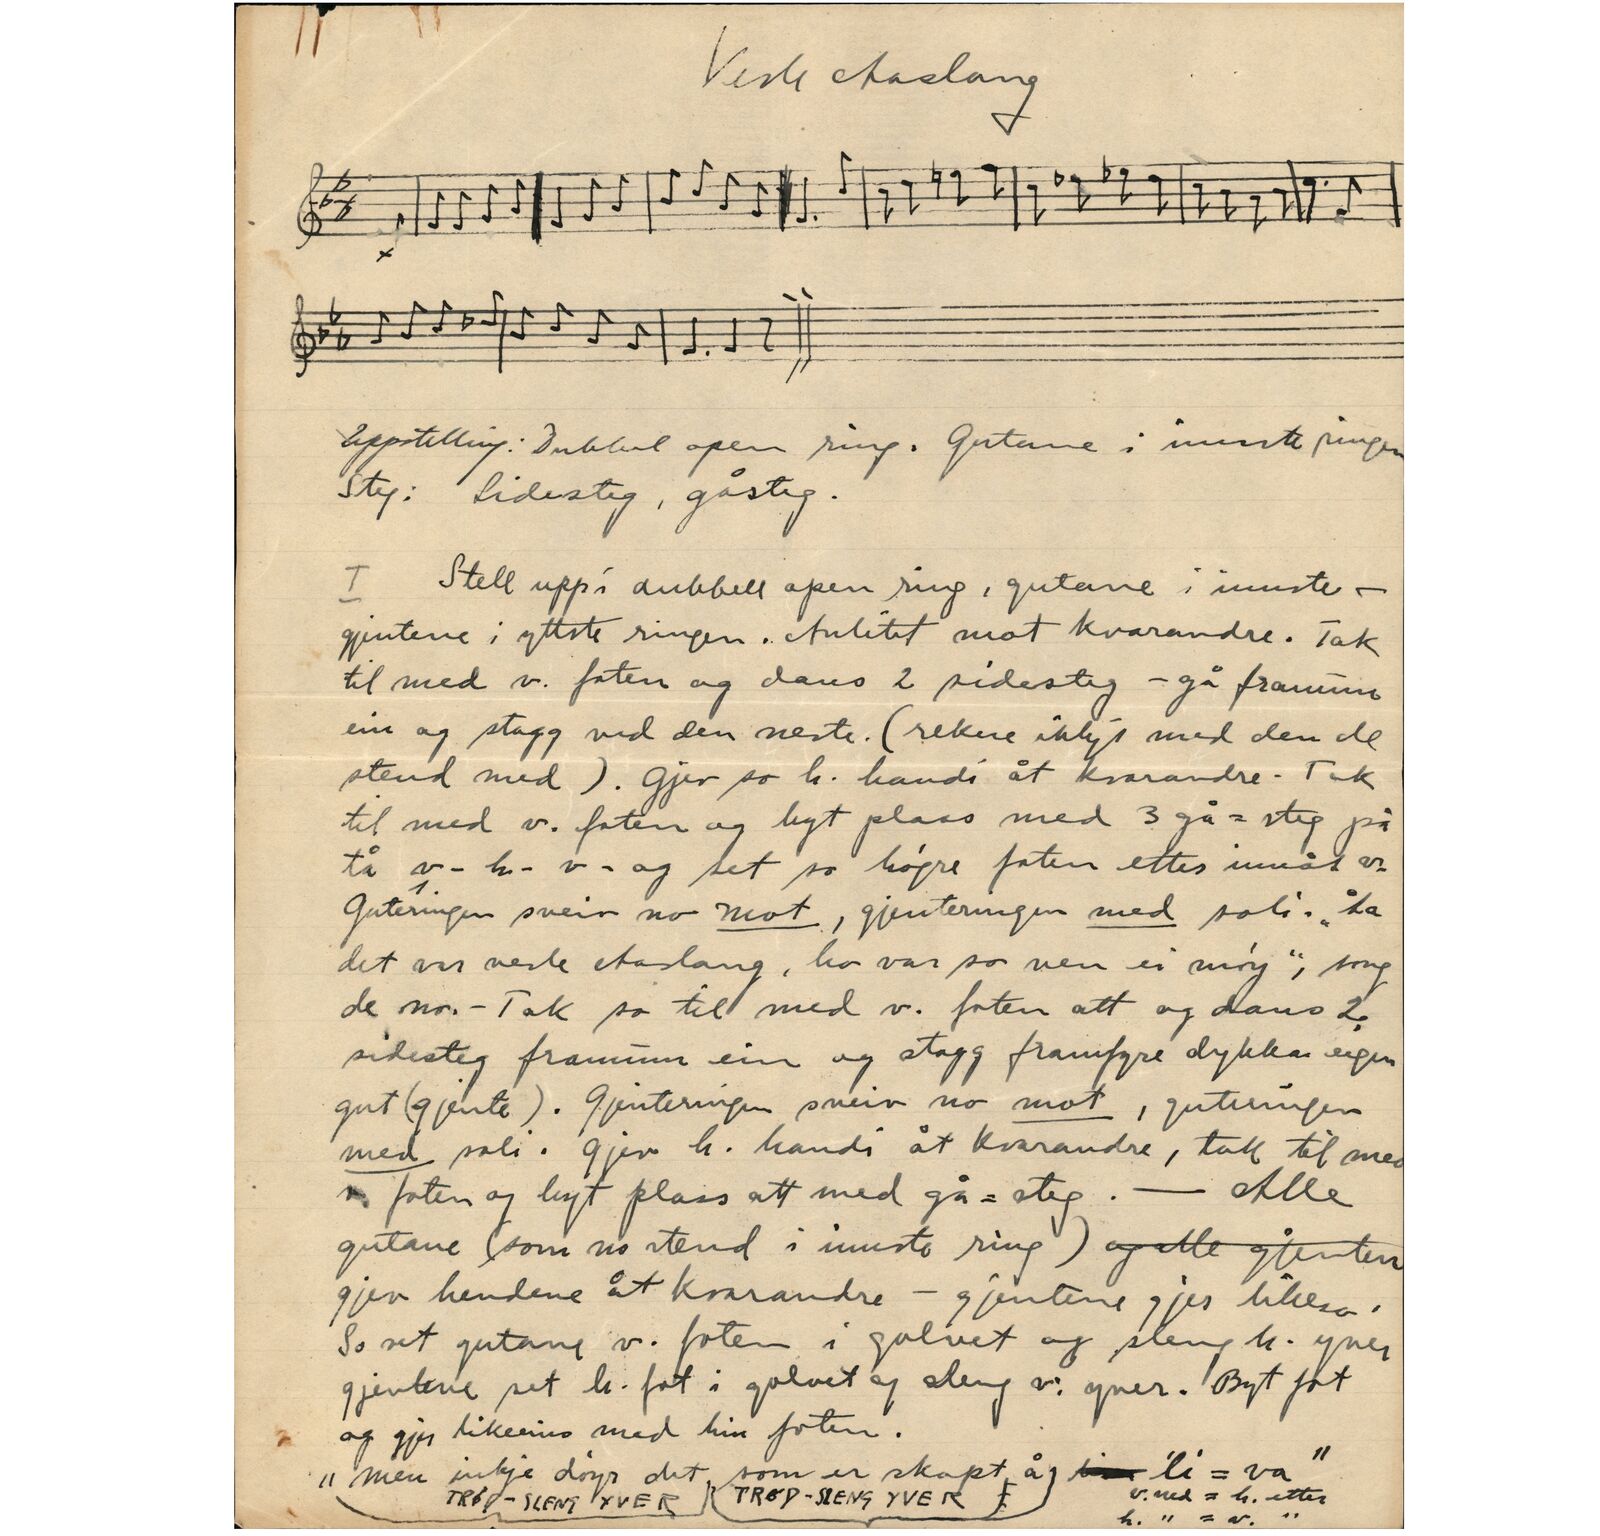 Vesle Aaslaug
Uppstelling: Dubbel open ring. Gutane i inste ringen
Steg: Sidesteg, gåsteg.
I Stell upp i dubbell open ring, gutane i inste –
gjentene i yttste ringen. Anlitet mot kvarandre. Tak
til med v. foten og dans 2 sidesteg – gå framum
ein og stogg ved den neste. (rekne ikkje med den de
stend med). Gjev so h. handi åt kvarandre – Tak
til med v. foten og byt plass med 3 gå=steg på
tå v – h – v – og set so högre foten etter innåt v.
Guteringen sveiv no mot, gjenteringen med soli. „Aa
det var vesle Aaslaug, ho var so ven ei möy“, song
de no. – Tak so til med v. foten att og dans 2
sidesteg framum ein og stogg framfyre dykkar eigen
gut (gjente). Gjenteringen sveiv no mot, guteringen
med soli. Gjev h. handi åt kvarandre, tak til med
v. foten og byt plass att med gå=steg. — Alle
gutane (som no stend i inste ring) og alle gjenten
gjev hendene åt kvarandre – gjentene gjer likeso.
So set gutane v. foten i golvet og sleng h. yver
gjentene set h. fot i golvet og sleng v. yver. Byt fot
og gjer likeeins med hin foten.
" men inkje döyr det, som er skapt å li = va "
TRØD-SLENG YVER TRØD-SLENG YVER v. ned = h. etter
h. " = v. "